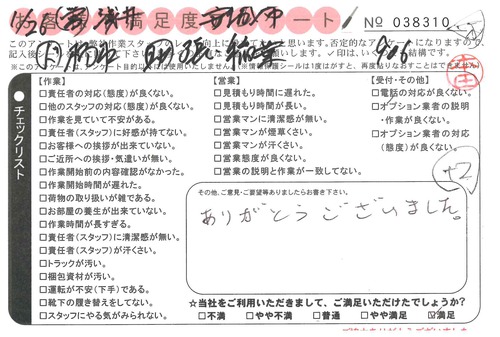 足度
ート
No 038310
【作業】
□責任者の対応(態度)が良くない。
□他のスタッフの対応(態度)が良くない。
□作業を見ていて不安がある。
□責任者(スタッフ)に好感が持てない。
□お客様への挨拶が出来ていない。
□ご近所への挨拶・気遣いが無い。
□作業開始前の内容確認がなかった。
□作業開始時間が遅れた。
□荷物の取り扱いが雑である。
□お部屋の養生が出来ていない。
□作業時間が長すぎる。
□責任者(スタッフ)に清潔感が無い。
□責任者(スタッフ)が汗くさい。
□トラックが汚い。
□梱包資材が汚い。
□運転が不安(下手)である。
□靴下の履き替えをしてない。
□スタッフにやる気がみられない。
【営業】
□見積もり時間に遅れた。
□見積もり時間が長い。
□営業マンに清潔感が無い。
□営業マンが煙草くさい。
□営業マンが汗くさい。
□営業態度が良くない。
□営業の説明と作業が一致してない。
【受付・その他】
□電話の対応が良くない。
□オプション業者の説明
・作業が良くない。
□オプション業者の対応
(態度)が良くない。
+2
●チェックリスト
その他、ご意見・ご要望等ありましたらお書き下さい。
ありがとうございました。
☆当社をご利用いただきまして、ご満足いただけたでしょうか?
□不満 □やや不満 □普通 □やや満足 ☑満足